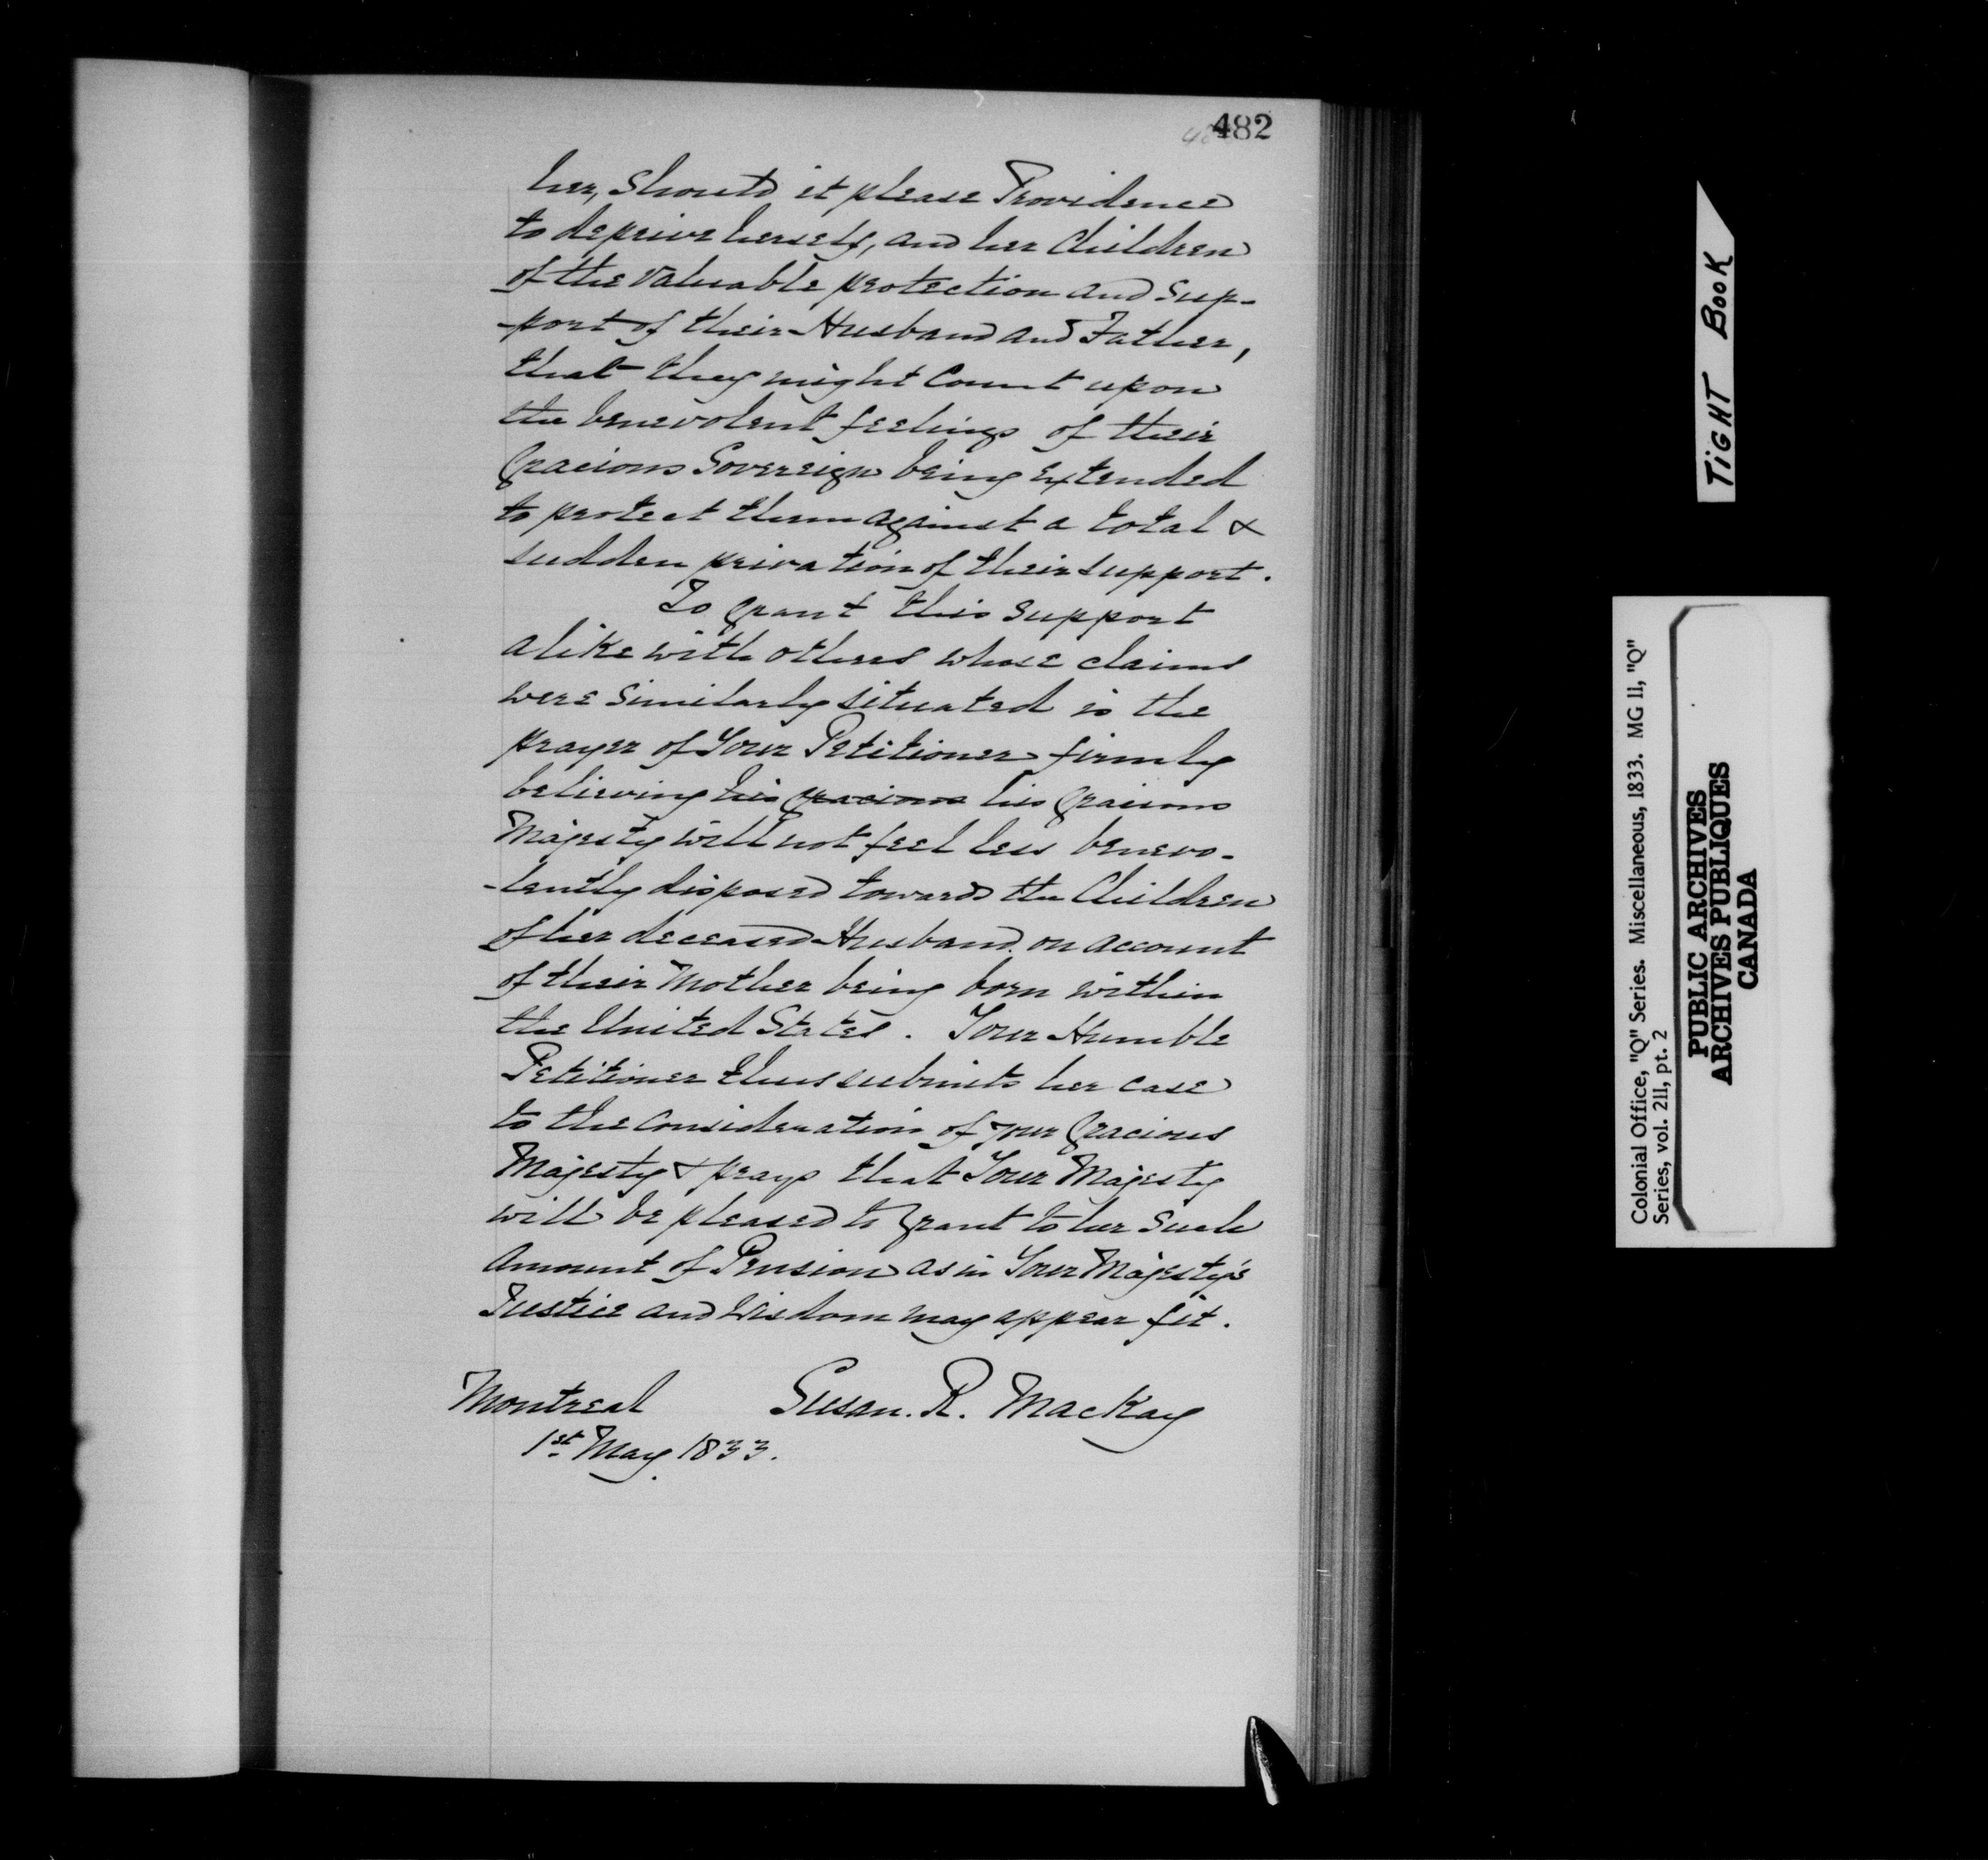 482
her, should it please Providence
to deprive herself, and her Children
of the valuable protection and sup-
-port of their Husband and Father,
that they might Count upon
the benevolent feelings of their
Gracious Sovereign being Extended
to protect them against a total &
sudden privation of their support.
To Grant this support
alike with others whose claims
were similarly situated is the
prayer of Your Petitioner firmly
believing his gracious his Graious
Majesty will not feel less benevo-
-lently disposed towards the Children
of her deceased Husband. on account
of their Mother being born within
the United States. Your Humble
Petitioner thus submits her case
to the Consideration of your Gracious
Majesty & prays that Your Majesty
will be pleased to Grant to her Such
Amount of Pension as in Your Majesty's
Justice and Wisdom may appear fit.
Montreal Susan. R. MacKay
1st May 1833.
TIGHT BOOK
Colonial Office, "Q" Series. Miscellaneous, 1833. MG 11, "Q"
Series, vol. 211, pt. 2
PUBLIC ARCHIVES
ARCHIVES PUBLIQUES
CANADA